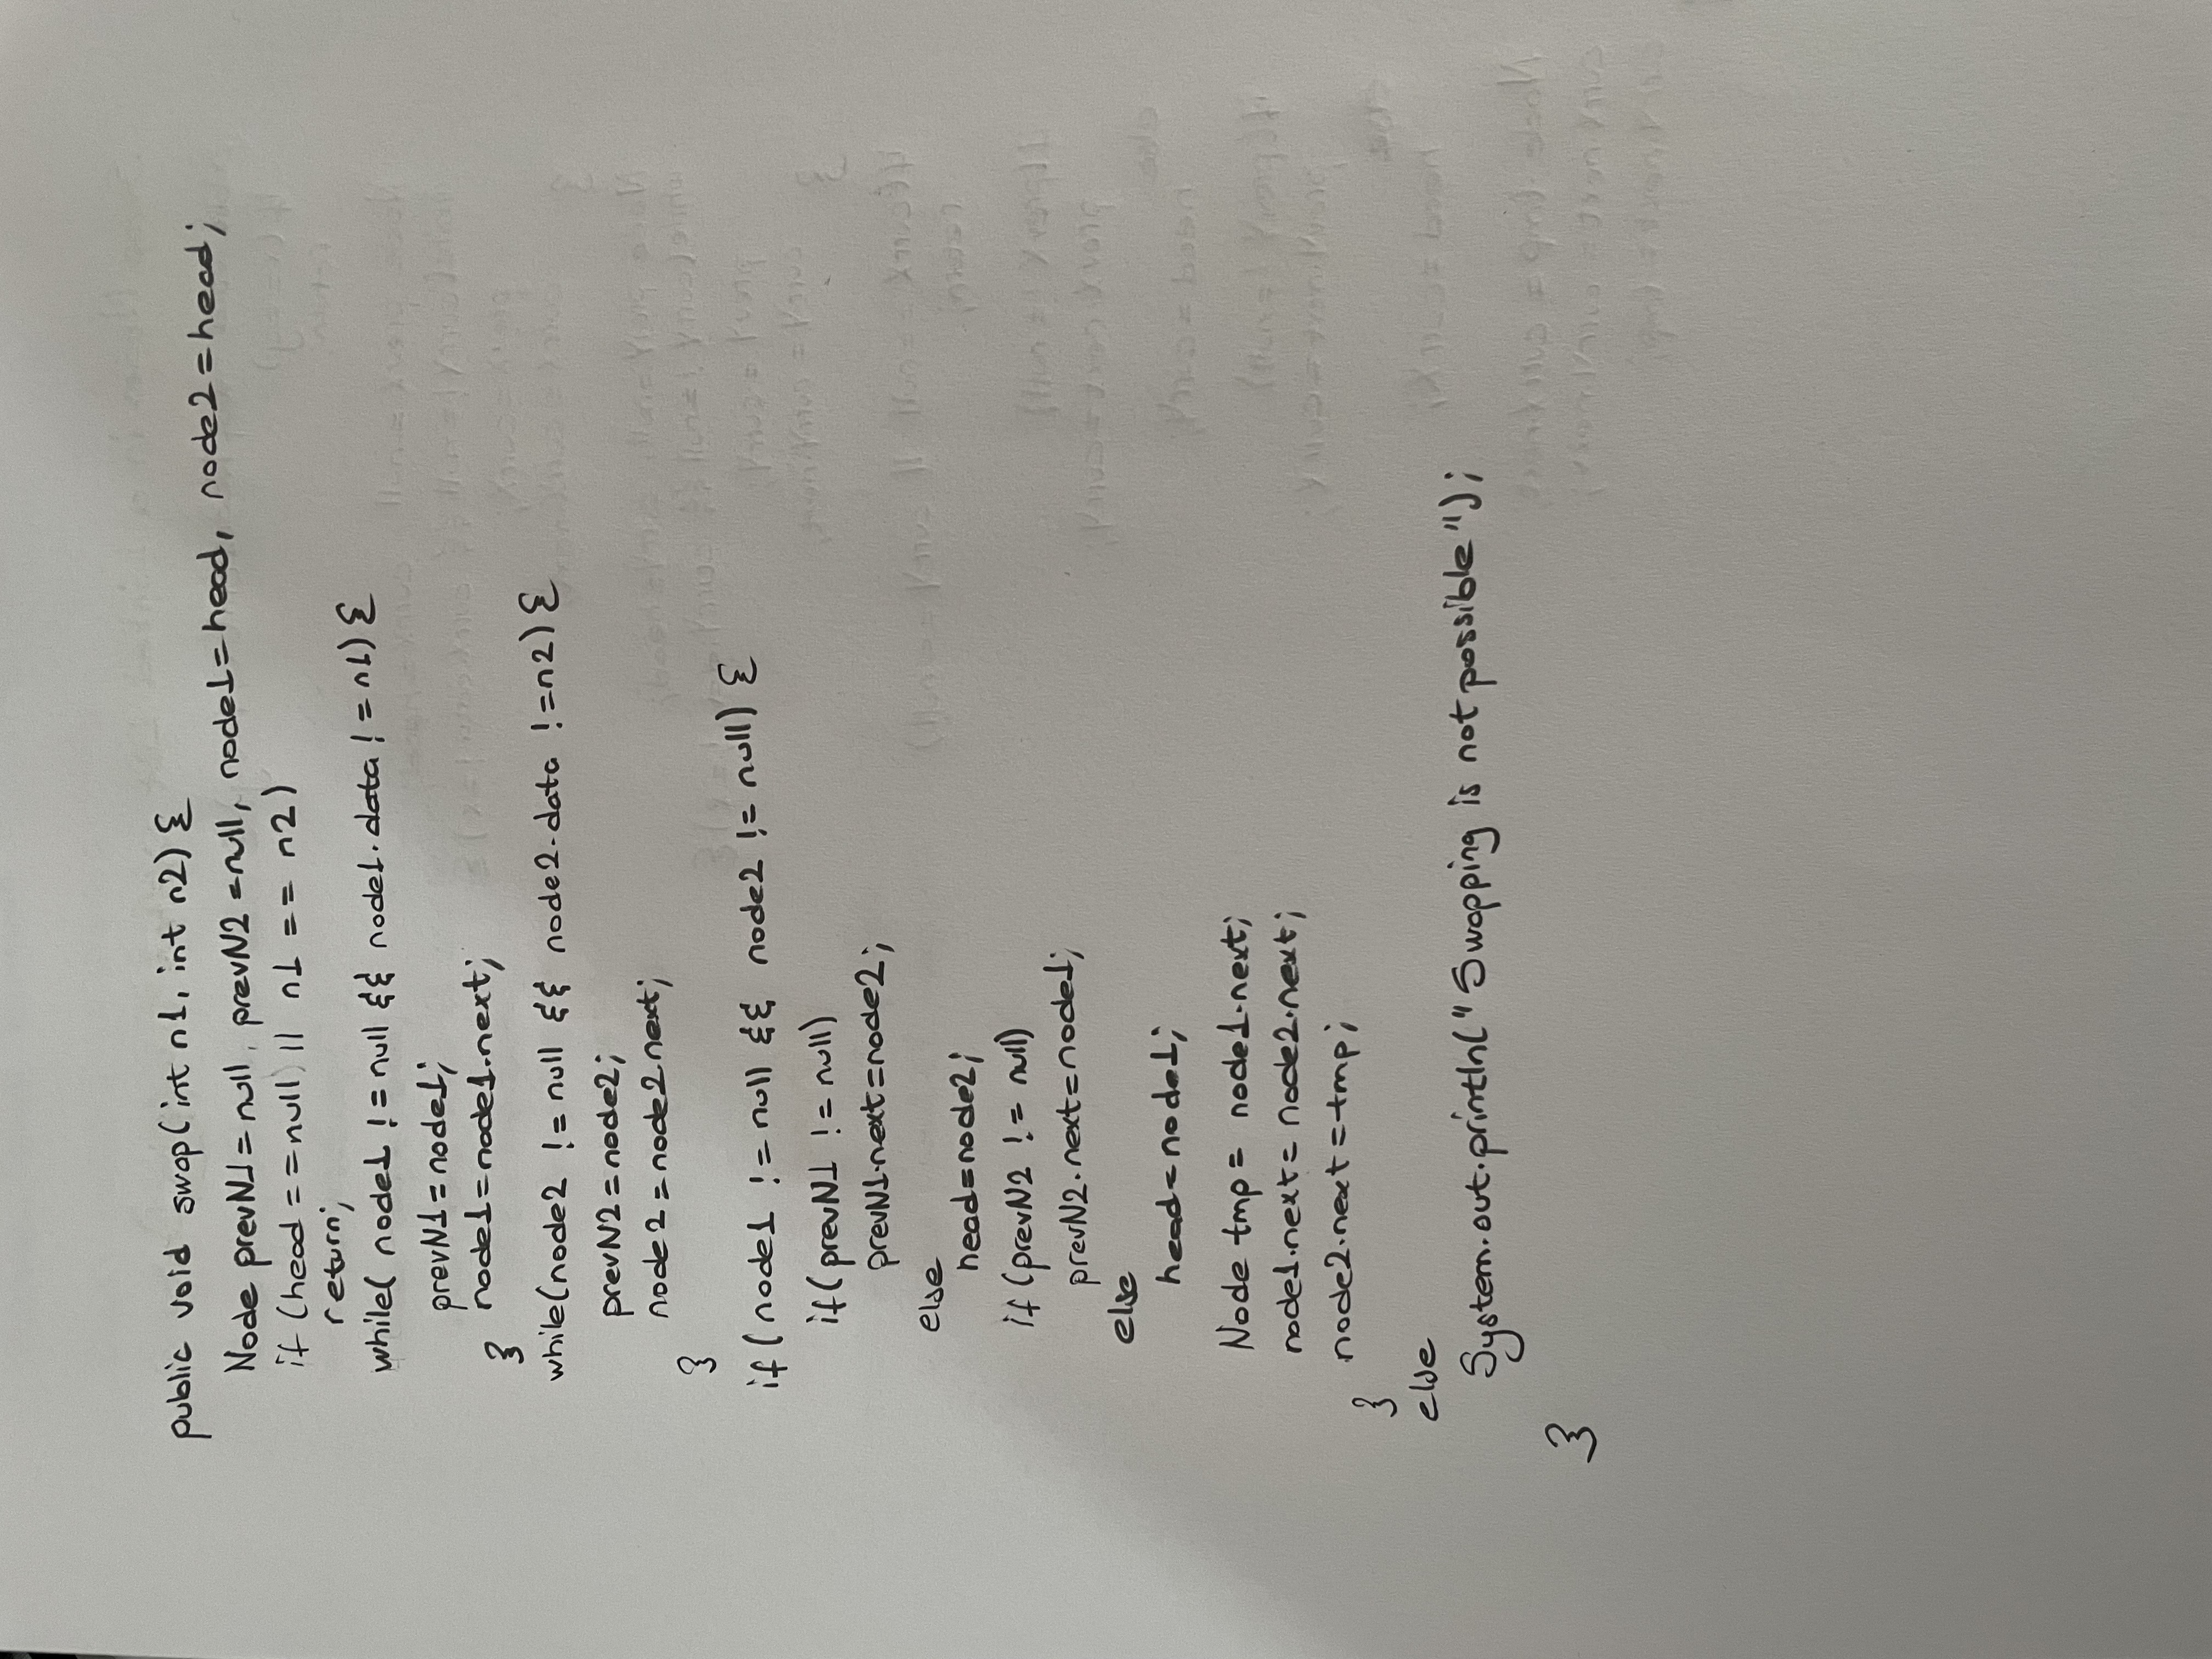 public void swap(int n1, int n2) {
Node prevN1 = null, prevN2 = null, node1=head, node2=head;
if (head == null) || n1 == n2)
return;
while( node1 != null && node1.data != n1) {
prevN1 = node1;
node1=node1.next;
}
while(node2 != null && node2.data !=n2) {
prevN2 = node2;
node2 = node2.next;
}
if( node1 != null && node2 != null) {
if( prevN1 != null)
prevN1.next=node2;
else
head=node2;
if (prevN2 != null)
prevN2.next=node1;
else
head=node1;
Node tmp = node1.next;
node1.next= node2.next;
node2.next=tmp;
}
else
System.out.println(" Swopping is not possible");
}